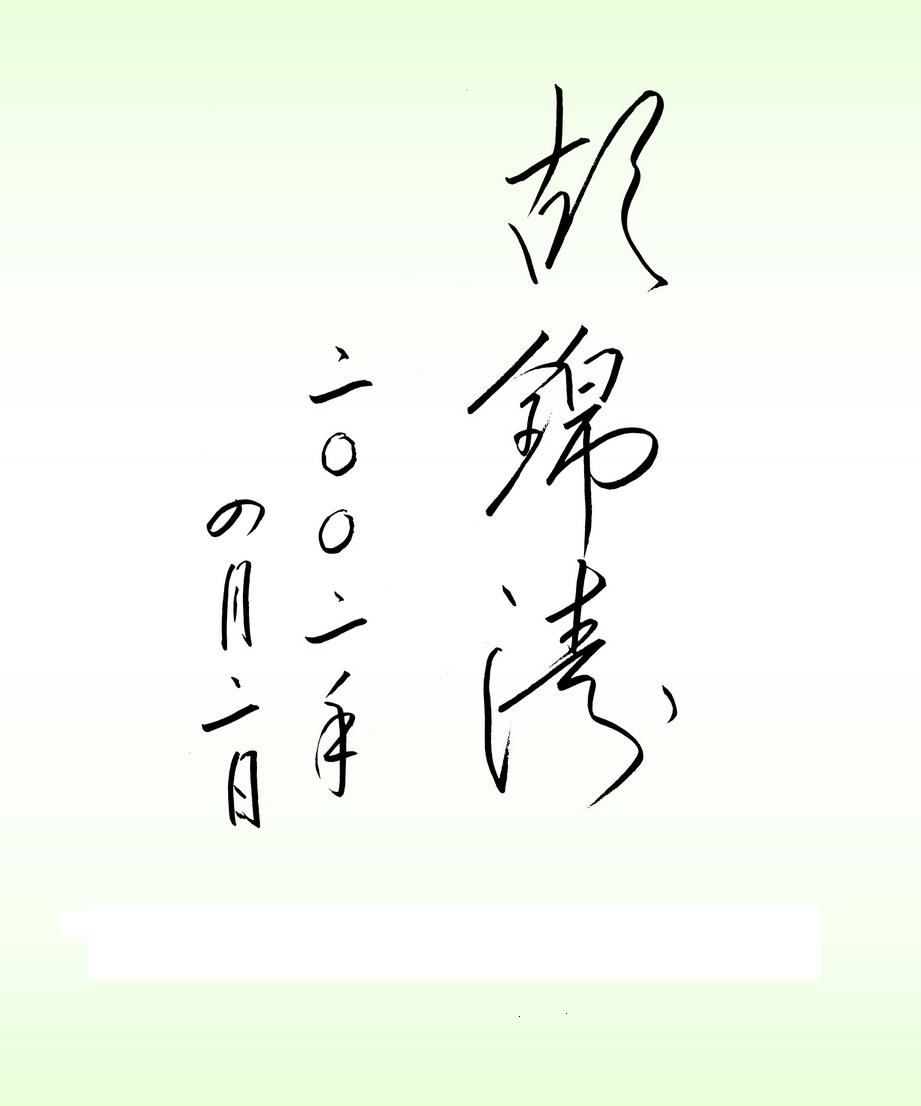 胡錦濤
二〇〇二年
四月二日